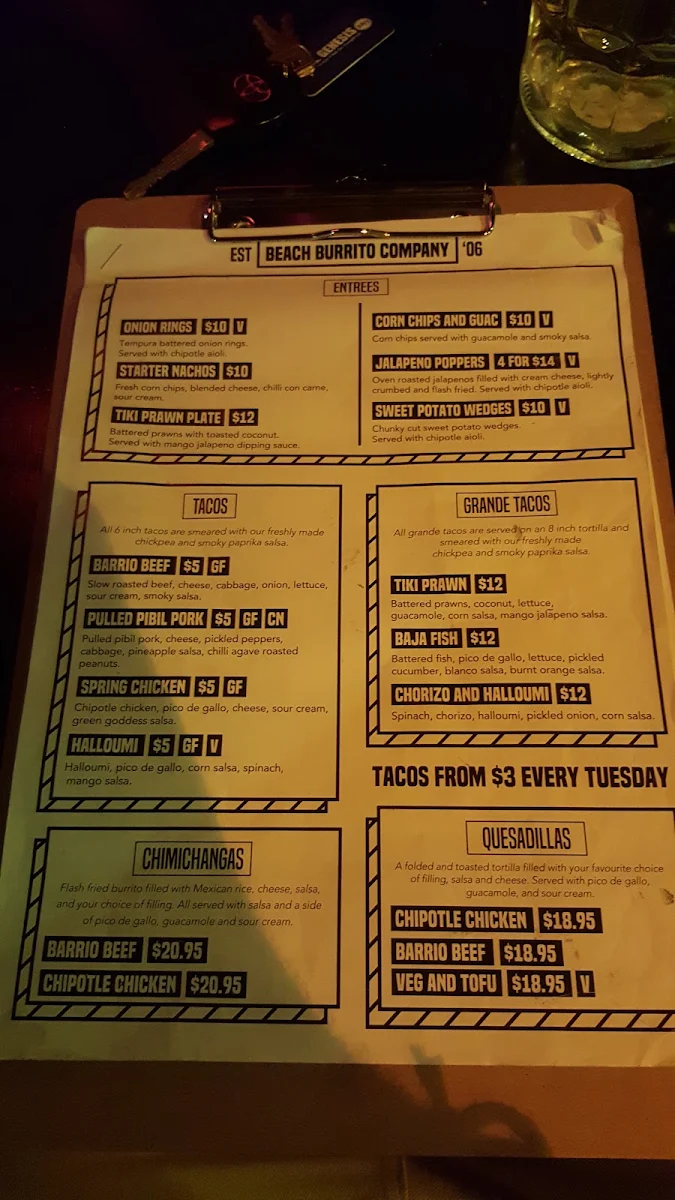 GENESIS
EST BEACH BURRITO COMPANY '06
ENTREES
ONION RINGS $10 V
Tempura battered onion rings.
Served with chipotle aioli.
STARTER NACHOS $10
Fresh corn chips, blended cheese, chilli con carne,
sour cream.
TIKI PRAWN PLATE $12
Battered prawns with toasted coconut.
Served with mango jalapeno dipping sauce.
CORN CHIPS AND GUAC $10 V
Corn chips served with guacamole and smoky salsa.
JALAPENO POPPERS 4 FOR $14 V
Oven roasted jalapenos filled with cream cheese, lightly
crumbed and flash fried. Served with chipotle aioli.
SWEET POTATO WEDGES $10 V
Chunky cut sweet potato wedges.
Served with chipotle aioli.
TACOS
All 6 inch tacos are smeared with our freshly made
chickpea and smoky paprika salsa.
BARRIO BEEF $5 GF
Slow roasted beef, cheese, cabbage, onion, lettuce,
sour cream, smoky salsa.
PULLED PIBIL PORK $5 GF CN
Pulled pibil pork, cheese, pickled peppers,
cabbage, pineapple salsa, chilli agave roasted
peanuts.
SPRING CHICKEN $5 GF
Chipotle chicken, pico de gallo, cheese, sour cream,
green goddess salsa.
HALLOUMI $5 GF V
Halloumi, pico de gallo, corn salsa, spinach,
mango salsa.
GRANDE TACOS
All grande tacos are served on an 8 inch tortilla and
smeared with our freshly made
chickpea and smoky paprika salsa.
TIKI PRAWN $12
Battered prawns, coconut, lettuce,
guacamole, corn salsa, mango jalapeno salsa.
BAJA FISH $12
Battered fish, pico de gallo, lettuce, pickled
cucumber, blanco salsa, burnt orange salsa.
CHORIZO AND HALLOUMI $12
Spinach, chorizo, halloumi, pickled onion, corn salsa.
TACOS FROM $3 EVERY TUESDAY
CHIMICHANGAS
Flash fried burrito filled with Mexican rice, cheese, salsa,
and your choice of filling. All served with salsa and a side
of pico de gallo, guacamole and sour cream.
BARRIO BEEF $20.95
CHIPOTLE CHICKEN $20.95
QUESADILLAS
A folded and toasted tortilla filled with your favourite choice
of filling, salsa and cheese. Served with pico de gallo,
guacamole, and sour cream.
CHIPOTLE CHICKEN $18.95
BARRIO BEEF $18.95
VEG AND TOFU $18.95 V